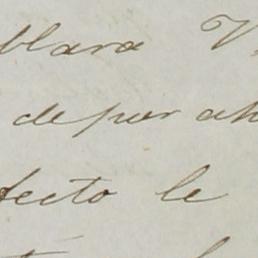 blara V
depor ah
fecto le